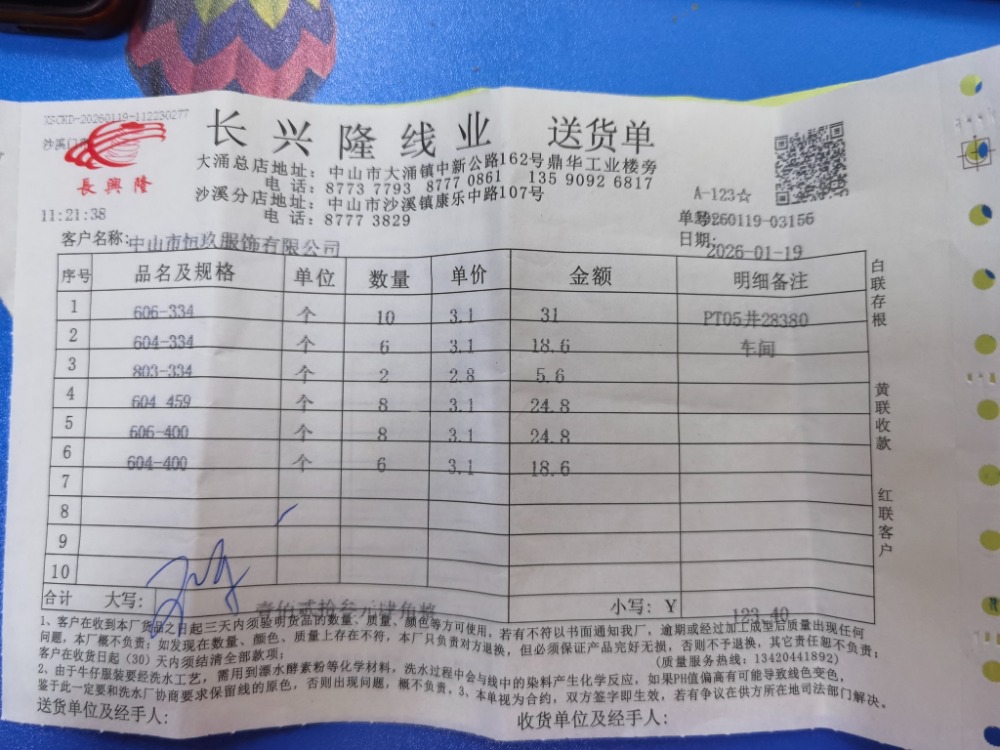 XSCKD-20260119-112230277
沙溪门
長興隆
长兴隆线业 送货单
大涌总店地址：中山市大涌镇中新公路162号鼎华工业楼旁
电话：8773 7793 8777 0861 135 9092 6817
沙溪分店地址：中山市沙溪镇康乐中路107号
电话：8777 3829
A-123☆
11:21:38
单号：260119-03156
客户名称：中山市恒玖服饰有限公司
日期：2026-01-19
序号 品名及规格 单位 数量 单价 金额 明细备注
1 606-334 个 10 3.1 31 PT05井28380
2 604-334 个 6 3.1 18.6 车间
3 803-334 个 2 2.8 5.6
4 604 459 个 8 3.1 24.8
5 606-400 个 8 3.1 24.8
6 604-400 个 6 3.1 18.6
7
8
9
10
合计 大写：壹佰贰拾叁元肆角整 小写：Y 123.40
白联存根
黄联收款
红联客户
1、客户在收到本厂货品之日起三天内须验明货品的数量、质量、颜色等方可使用，若有不符以书面通知我厂，逾期或经过加工成型后质量出现任何
问题，本厂概不负责；如发现在数量、颜色、质量上存在不符，本厂只负责对方退换，但必须保证产品完好无损，否则不予退换，其它责任恕不负责；
客户在收货日起（30）天内须结清全部款项； (质量服务热线：13420441892)
2、由于牛仔服装要经洗水工艺，需用到漂水酵素粉等化学材料，洗水过程中会与线中的染料产生化学反应，如果PH值偏高有可能导致线色变色，
鉴于此一定要和洗水厂协商要求保留线的原色，否则出现问题，概不负责，3、本单视为合约，双方签字即生效，若有争议在供方所在地司法部门解决。
送货单位及经手人： 收货单位及经手人：